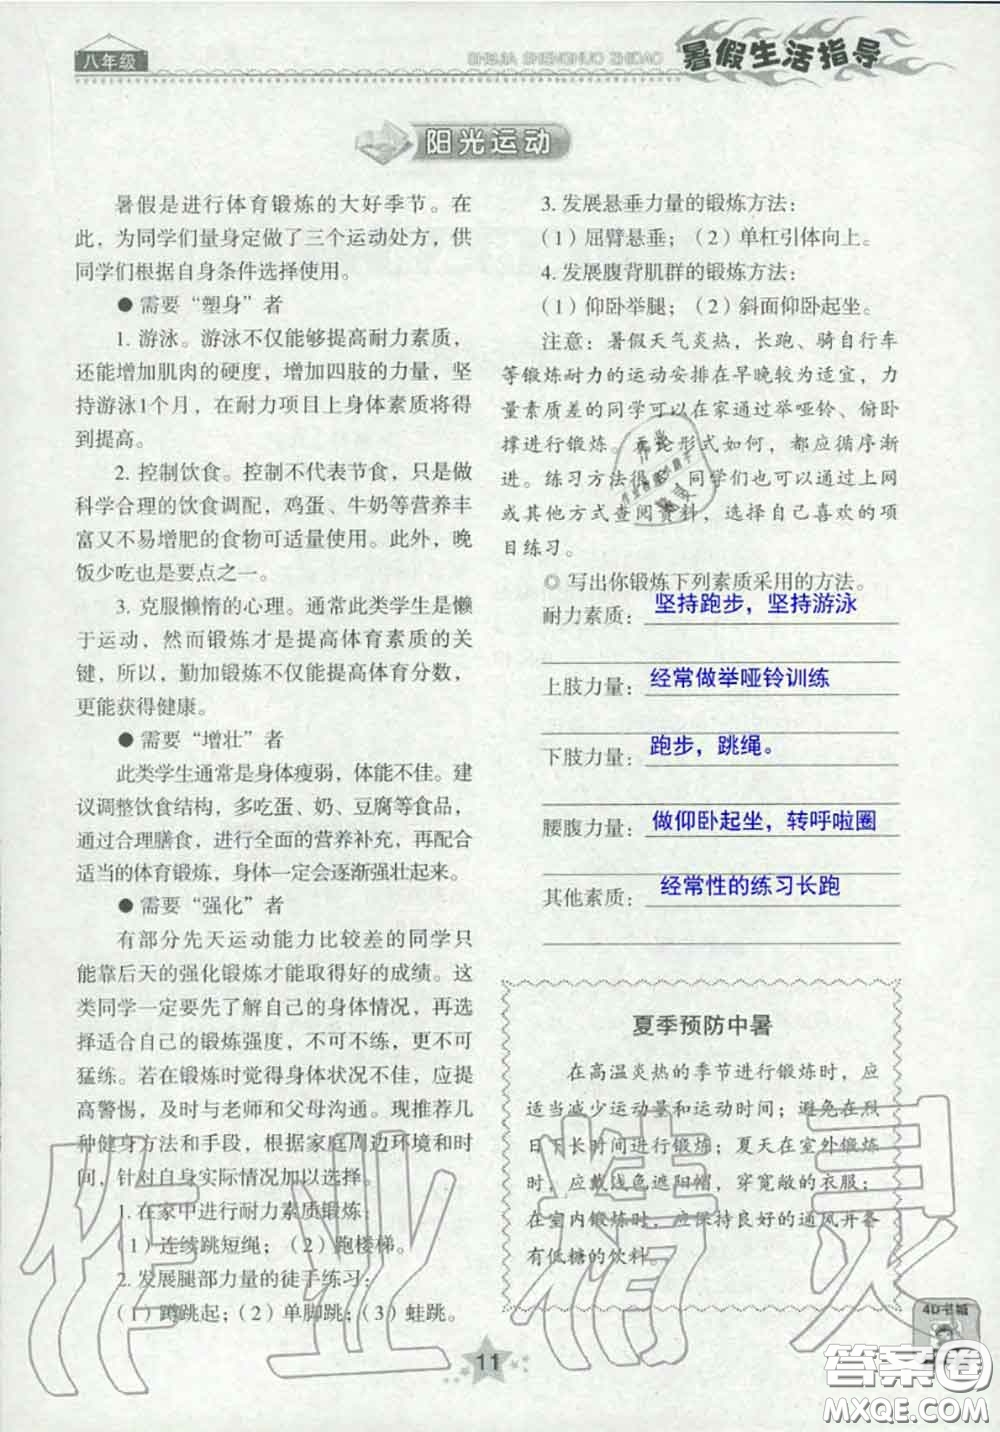 八年级
SHUJIA SHENGHUO ZHIDAO
暑假生活指导
阳光运动
暑假是进行体育锻炼的大好季节。在
此，为同学们量身定做了三个运动处方，供
同学们根据自身条件选择使用。
●需要“塑身”者
1. 游泳。游泳不仅能够提高耐力素质，
还能增加肌肉的硬度，增加四肢的力量，坚
持游泳1个月，在耐力项目上身体素质将得
到提高。
2. 控制饮食。控制不代表节食，只是做
科学合理的饮食调配，鸡蛋、牛奶等营养丰
富又不易增肥的食物可适量使用。此外，晚
饭少吃也是要点之一。
3. 克服懒惰的心理。通常此类学生是懒
于运动，然而锻炼才是提高体育素质的关
键，所以，勤加锻炼不仅能提高体育分数，
更能获得健康。
●需要“增壮”者
此类学生通常是身体瘦弱，体能不佳。建
议调整饮食结构，多吃蛋、奶、豆腐等食品，
通过合理膳食，进行全面的营养补充，再配合
适当的体育锻炼，身体一定会逐渐强壮起来。
●需要“强化”者
有部分先天运动能力比较差的同学只
能靠后天的强化锻炼才能取得好的成绩。这
类同学一定要先了解自己的身体情况，再选
择适合自己的锻炼强度，不可不练，更不可
猛练。若在锻炼时觉得身体状况不佳，应提
高警惕，及时与老师和父母沟通。现推荐几
种健身方法和手段，根据家庭周边环境和时
间，针对自身实际情况加以选择。
1. 在家中进行耐力素质锻炼：
（1）连续跳短绳；（2）跑楼梯。
2. 发展腿部力量的徒手练习：
（1）蹲跳起；（2）单脚跳；（3）蛙跳。
3. 发展悬垂力量的锻炼方法：
（1）屈臂悬垂；（2）单杠引体向上。
4. 发展腹背肌群的锻炼方法：
（1）仰卧举腿；（2）斜面仰卧起坐。
注意：暑假天气炎热，长跑、骑自行车
等锻炼耐力的运动安排在早晚较为适宜，力
量素质差的同学可以在家通过举哑铃、俯卧
撑进行锻炼。无论形式如何，都应循序渐
进。练习方法很多，同学们可以通过上网
或其他方式查阅资料，选择自己喜欢的项
目练习。
◎ 写出你锻炼下列素质采用的方法。
耐力素质：坚持跑步，坚持游泳
上肢力量：经常做举哑铃训练
下肢力量：跑步，跳绳。
腰腹力量：做仰卧起坐，转呼啦圈
其他素质：经常性的练习长跑
夏季预防中暑
在高温炎热的季节进行锻炼时，应
适当减少运动量和运动时间；避免在烈
日下长时间进行锻炼；夏天在室外锻炼
时，应戴浅色遮阳帽，穿宽敞的衣服；
在室内锻炼时，应保持良好的通风并备
有低糖的饮料。
作业精灵
11
4D书城
答案圈
MXQE.COM